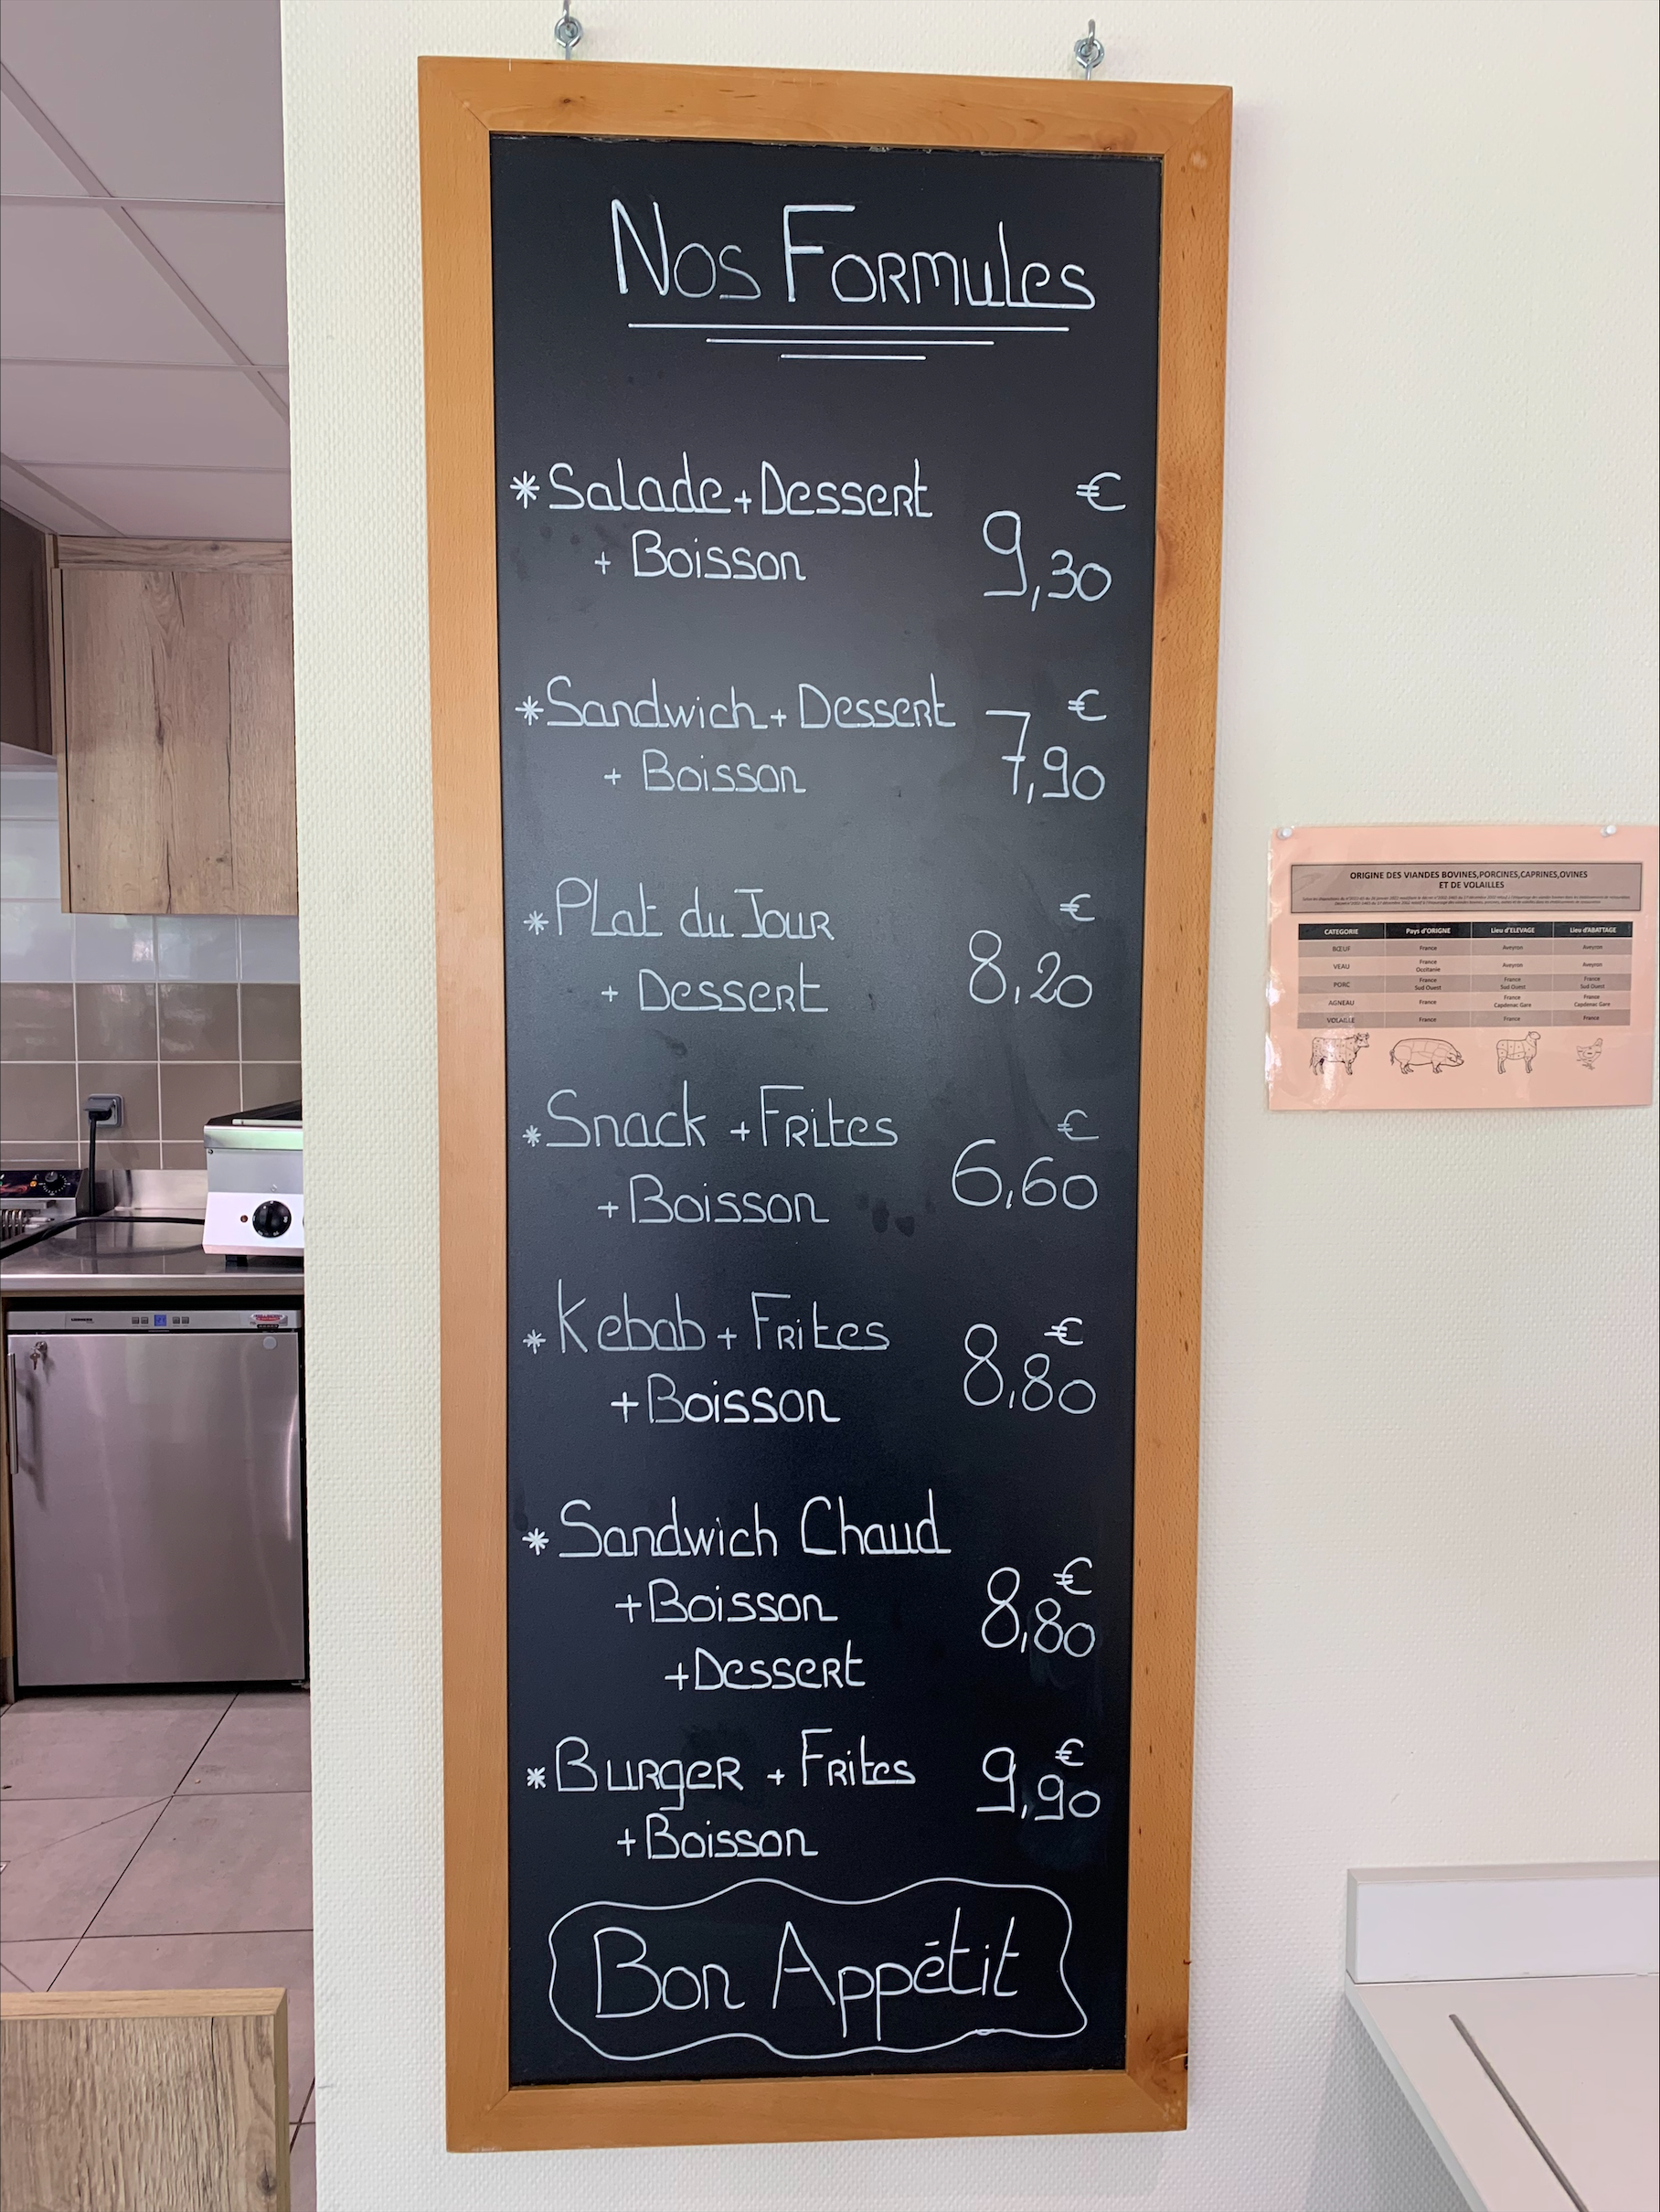 Nos Formules
* Salade + Dessert
+ Boisson
€
9,30
* Sandwich + Dessert
+ Boisson
€
7,90
* Plat du Jour
+ Dessert
€
8,20
* Snack + Frites
+ Boisson
€
6,60
* Kebab + Frites
+ Boisson
€
8,80
* Sandwich Chaud
+ Boisson
+ Dessert
€
8,80
* Burger + Frites
+ Boisson
€
9,90
Bon Appétit
ORIGINE DES VIANDES BOVINES,PORCINES,CAPRINES,OVINES
ET DE VOLAILLES
CATEGORIE Pays d'ORIGNE Lieu d'ELEVAGE Lieu d'ABATTAGE
BŒUF France Aveyron Aveyron
VEAU France Occitanie Aveyron Aveyron
PORC France Sud Ouest France Sud Ouest France Sud Ouest
AGNEAU France France Capdenac Gare France Capdenac Gare
VOLAILLE France France France